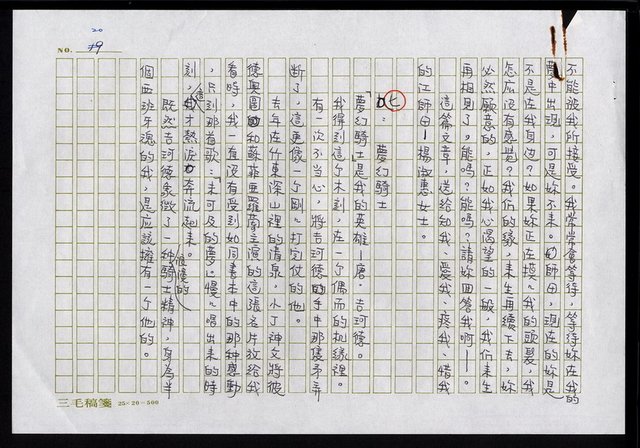 20
NO. 39
不能被我所接受。我常常會等待,等待妳在我的
夢中出現,可是妳不來。師母,現在的妳是
不是在我身邊?如果妳正在摸我的頭髮,我
怎麼沒有感覺?我們的緣,來生再續下去,妳
必然願意的,正如我心渴望的一般,我們來生
再相見了,能嗎?能嗎?請妳回答我啊——。
這篇文章,送給知我、愛我、疼我、惜我
的江師母—楊淑惠女士。
七:夢幻騎士
「夢幻騎士」是我的英雄—唐.吉珂德。
我得到這個木刻,在一個偶而的機緣裡。
有一次不當心,將吉珂德的手中那隻矛弄
斷了,這更像一個剛打完仗的他。
去年在竹東深山裡的清泉,小丁神父將彼
德奧圖和蘇菲亞羅蘭主演的這張名片放給我
看時,我一直沒有受到如同書本中的那種感動
,只到那首歌:「未可及的夢」慢慢唱出來的時
刻,這才熱淚奔流起來。
既然吉珂德象徵了一種浪漫的騎士精神,身為半
個西班牙魂的我,是應該擁有一個他的。
三毛稿箋 25×20=500